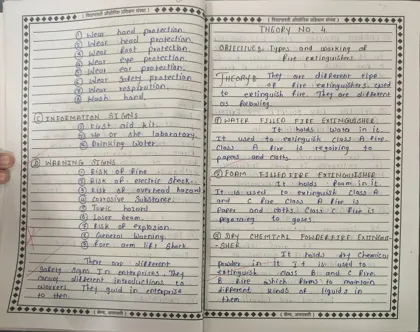 ① Wear hand protection
② Wear head protection
③ Wear foot protection
④ Wear eye protection.
⑤ Wear ear protection.
⑥ Wear Safety protection
⑦ Wear respiration.
⑧ Wash hand.
Ⓒ INFORMATION SIGNS
① First aid kit
② No or she laboratory
③ Drinking water.
Ⓓ WARNING SIGNS
① Risk of fire
② Risk of electric shock.
③ Risk of overhead hazard
④ Corrosive Substance.
⑤ Toxic hazard
⑥ Laser beam.
⑦ Risk of explosion
⑧ General Warning.
⑨ Fore arm lift Shark.
These are different
Safety Signs In enterprises. They
different introductions to
workers. They guid in enterprise
to then.
THEORY NO. 4
OBJECTIVE:- Types and working of
Fire extinguishers.
THEORY:- They are different tipe
of fire extinguishers used
to extinguish fire. They are different
as following.
① WATER FILLED FIRE EXTINGUISHER
It holds water in it.
It used to extinguish class A fire.
Class A fire is regairing to
papers and cloth.
② FOAM FILLED FIRE EXTINGUISHER
It holds foam in it.
It is used to extinguish class A
and C fire Class A fire is
Paper and cloths. Class C fire is
to gases.
③ DRY CHEMICAL POWDER FIRE EXTINGUI-
-SHER
It holds dry Chemical
powder in it. It is used to
extinguish class B and C fire.
B fire which to maintain
different kinds of liquids in
them.